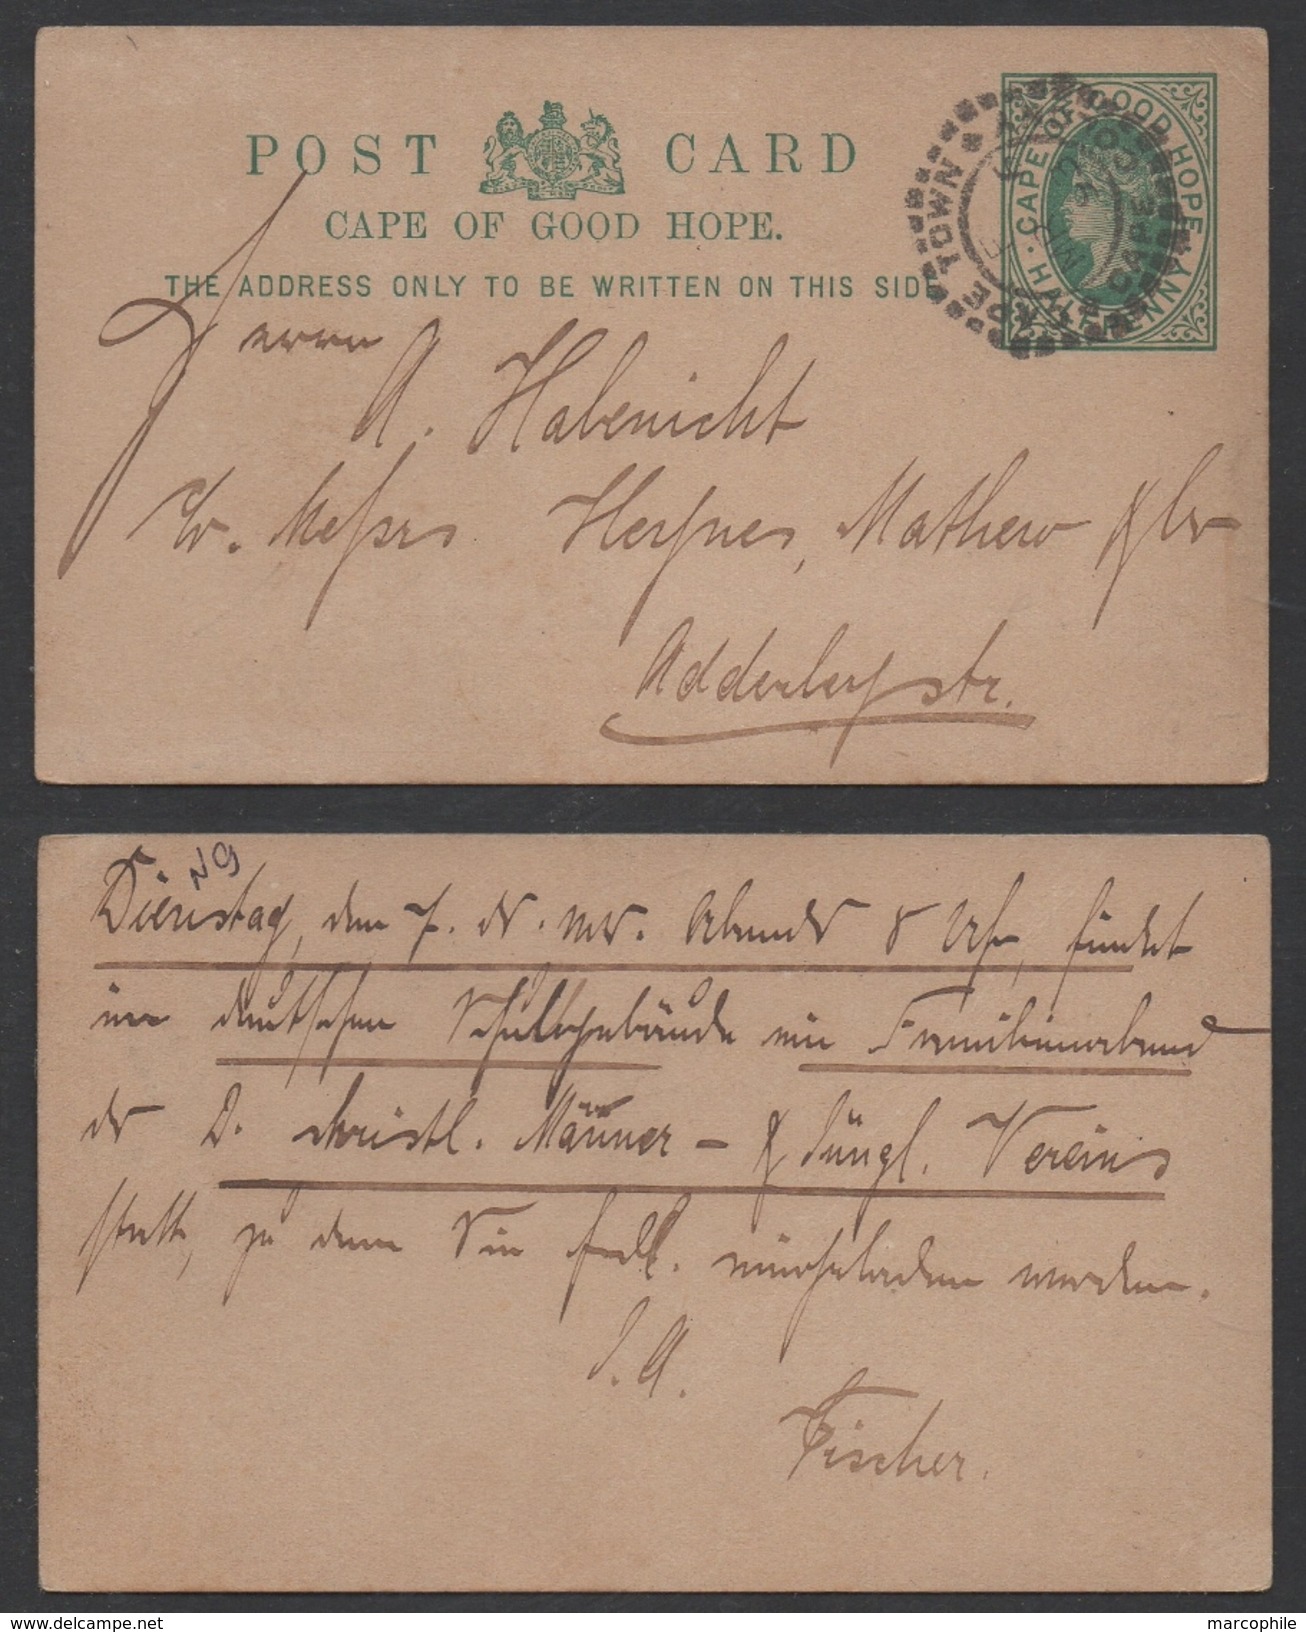 POST CARD
CAPE OF GOOD HOPE.
THE ADDRESS ONLY TO BE WRITTEN ON THIS SIDE
CAPE OF GOOD HOPE
HALF PENNY
CAPE TOWN
CAPE
Herrn
A. Habenicht
Messrs Heynes, Mathew & Co
Adderleystr.
NG
Dienstag, den 7. d. M. Abends 8 Uhr, findet
im deutschen Schulgebäude ein Familienabend
des D. christl. Männer- & Jüngl. Vereins
statt, zu dem Sie frdl. eingeladen werden.
I. A.
Fischer.
marcophile
www.delcampe.net